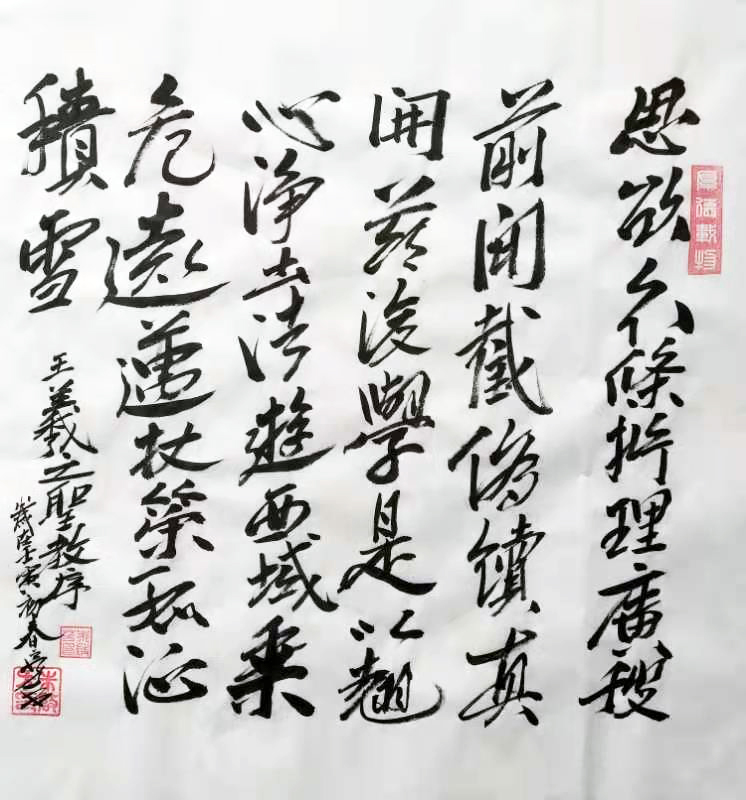 思欲分條析理廣彼
前聞截偽續真
開茲後學是以翹
心淨土法遊西域乘
危遠邁杖策孤征
積雪
王羲之聖教序
寅初春
厚德載物